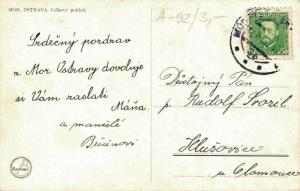 MOR. OSTRAVA. Celkový pohled.
A-92/3,-
Srdečný pozdrav
z Mor Ostravy dovoluje
si Vám zaslati
Máňa
a manželé
Důstojný Pán
p. Rudolf Svozil
Hlušovice
u Olomouce